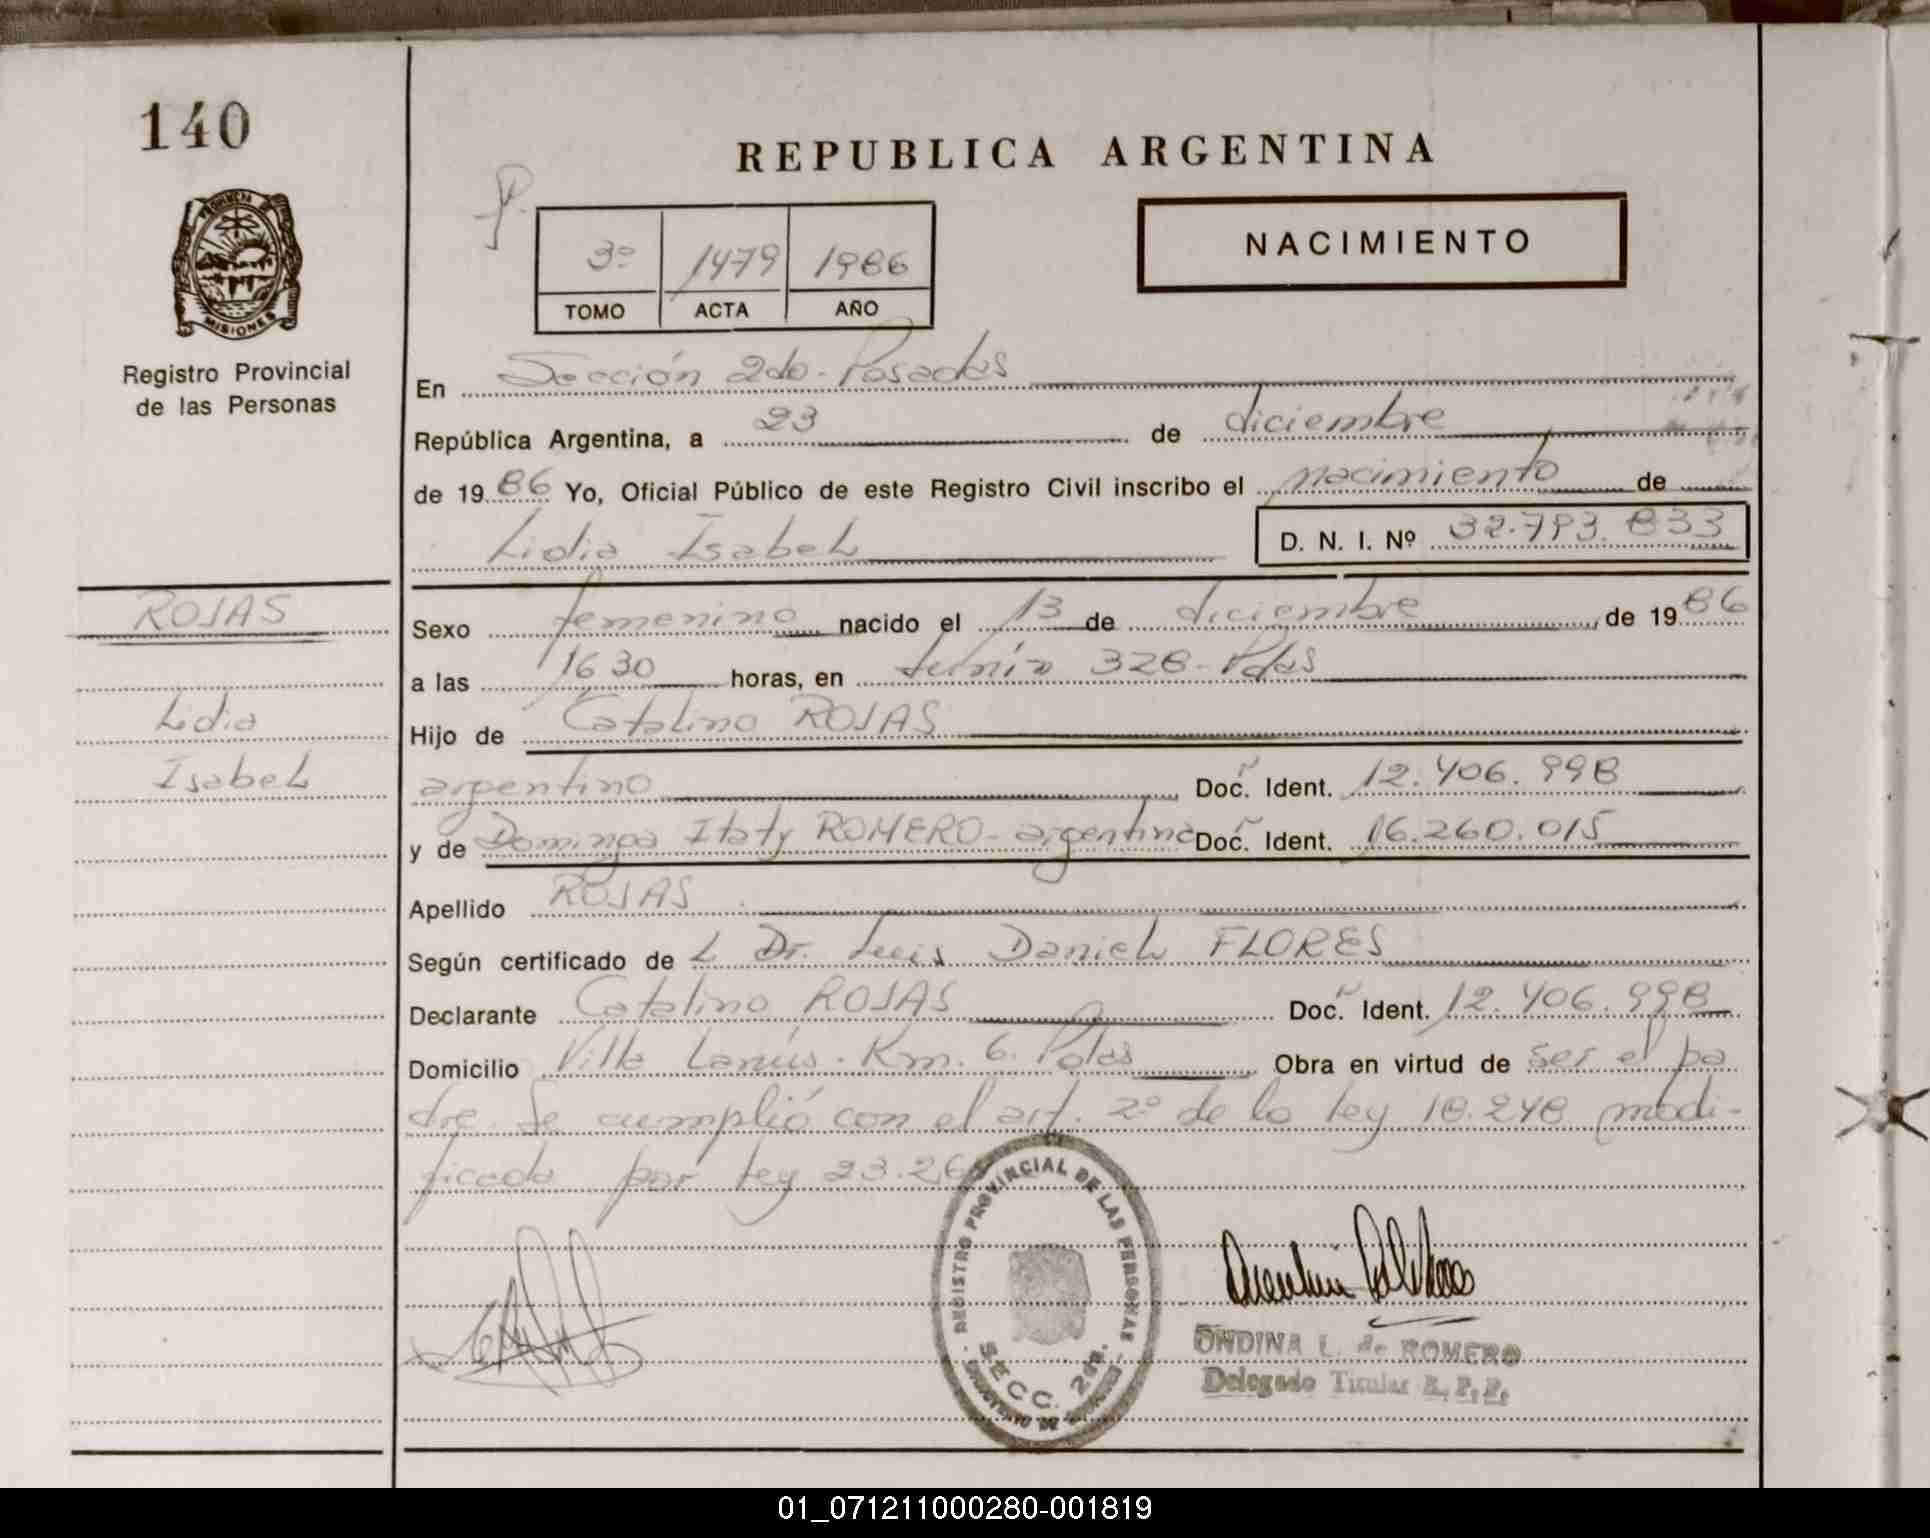 140
REPUBLICA ARGENTINA
PROVINCIA DE
MISIONES
Registro Provincial
de las Personas
3º 1479 1986
TOMO ACTA AÑO
NACIMIENTO
En Sección 2da. Posadas
República Argentina, a 23 de diciembre
de 1986 Yo, Oficial Público de este Registro Civil inscribo el nacimiento de
Lidia Isabel
D. N. I. Nº 32.793.833
ROJAS
Lidia
Isabel
Sexo femenino nacido el 13 de diciembre de 1986
a las 16 30 horas, en Junín 328 - Pdas
Hijo de Catalino ROJAS
argentino Doc. Ident. 12.406.998
y de Dominga Itaty ROMERO - argentina Doc. Ident. 16.260.015
Apellido ROJAS
Según certificado de L Dr. Luis Daniel FLORES
Declarante Catalino ROJAS Doc. Ident. 12.406.998
Domicilio Villa Lanús. Km. 6. Pdas Obra en virtud de ser el pa
dre. Se cumplió con el art. 2º de la ley 18.248 modi-
ficada por ley 23.26
REGISTRO PROVINCIAL DE LAS PERSONAS
SECC. 2da.
ONDINA L. de ROMERO
Delegado Titular R. P. P.
01_071211000280-001819